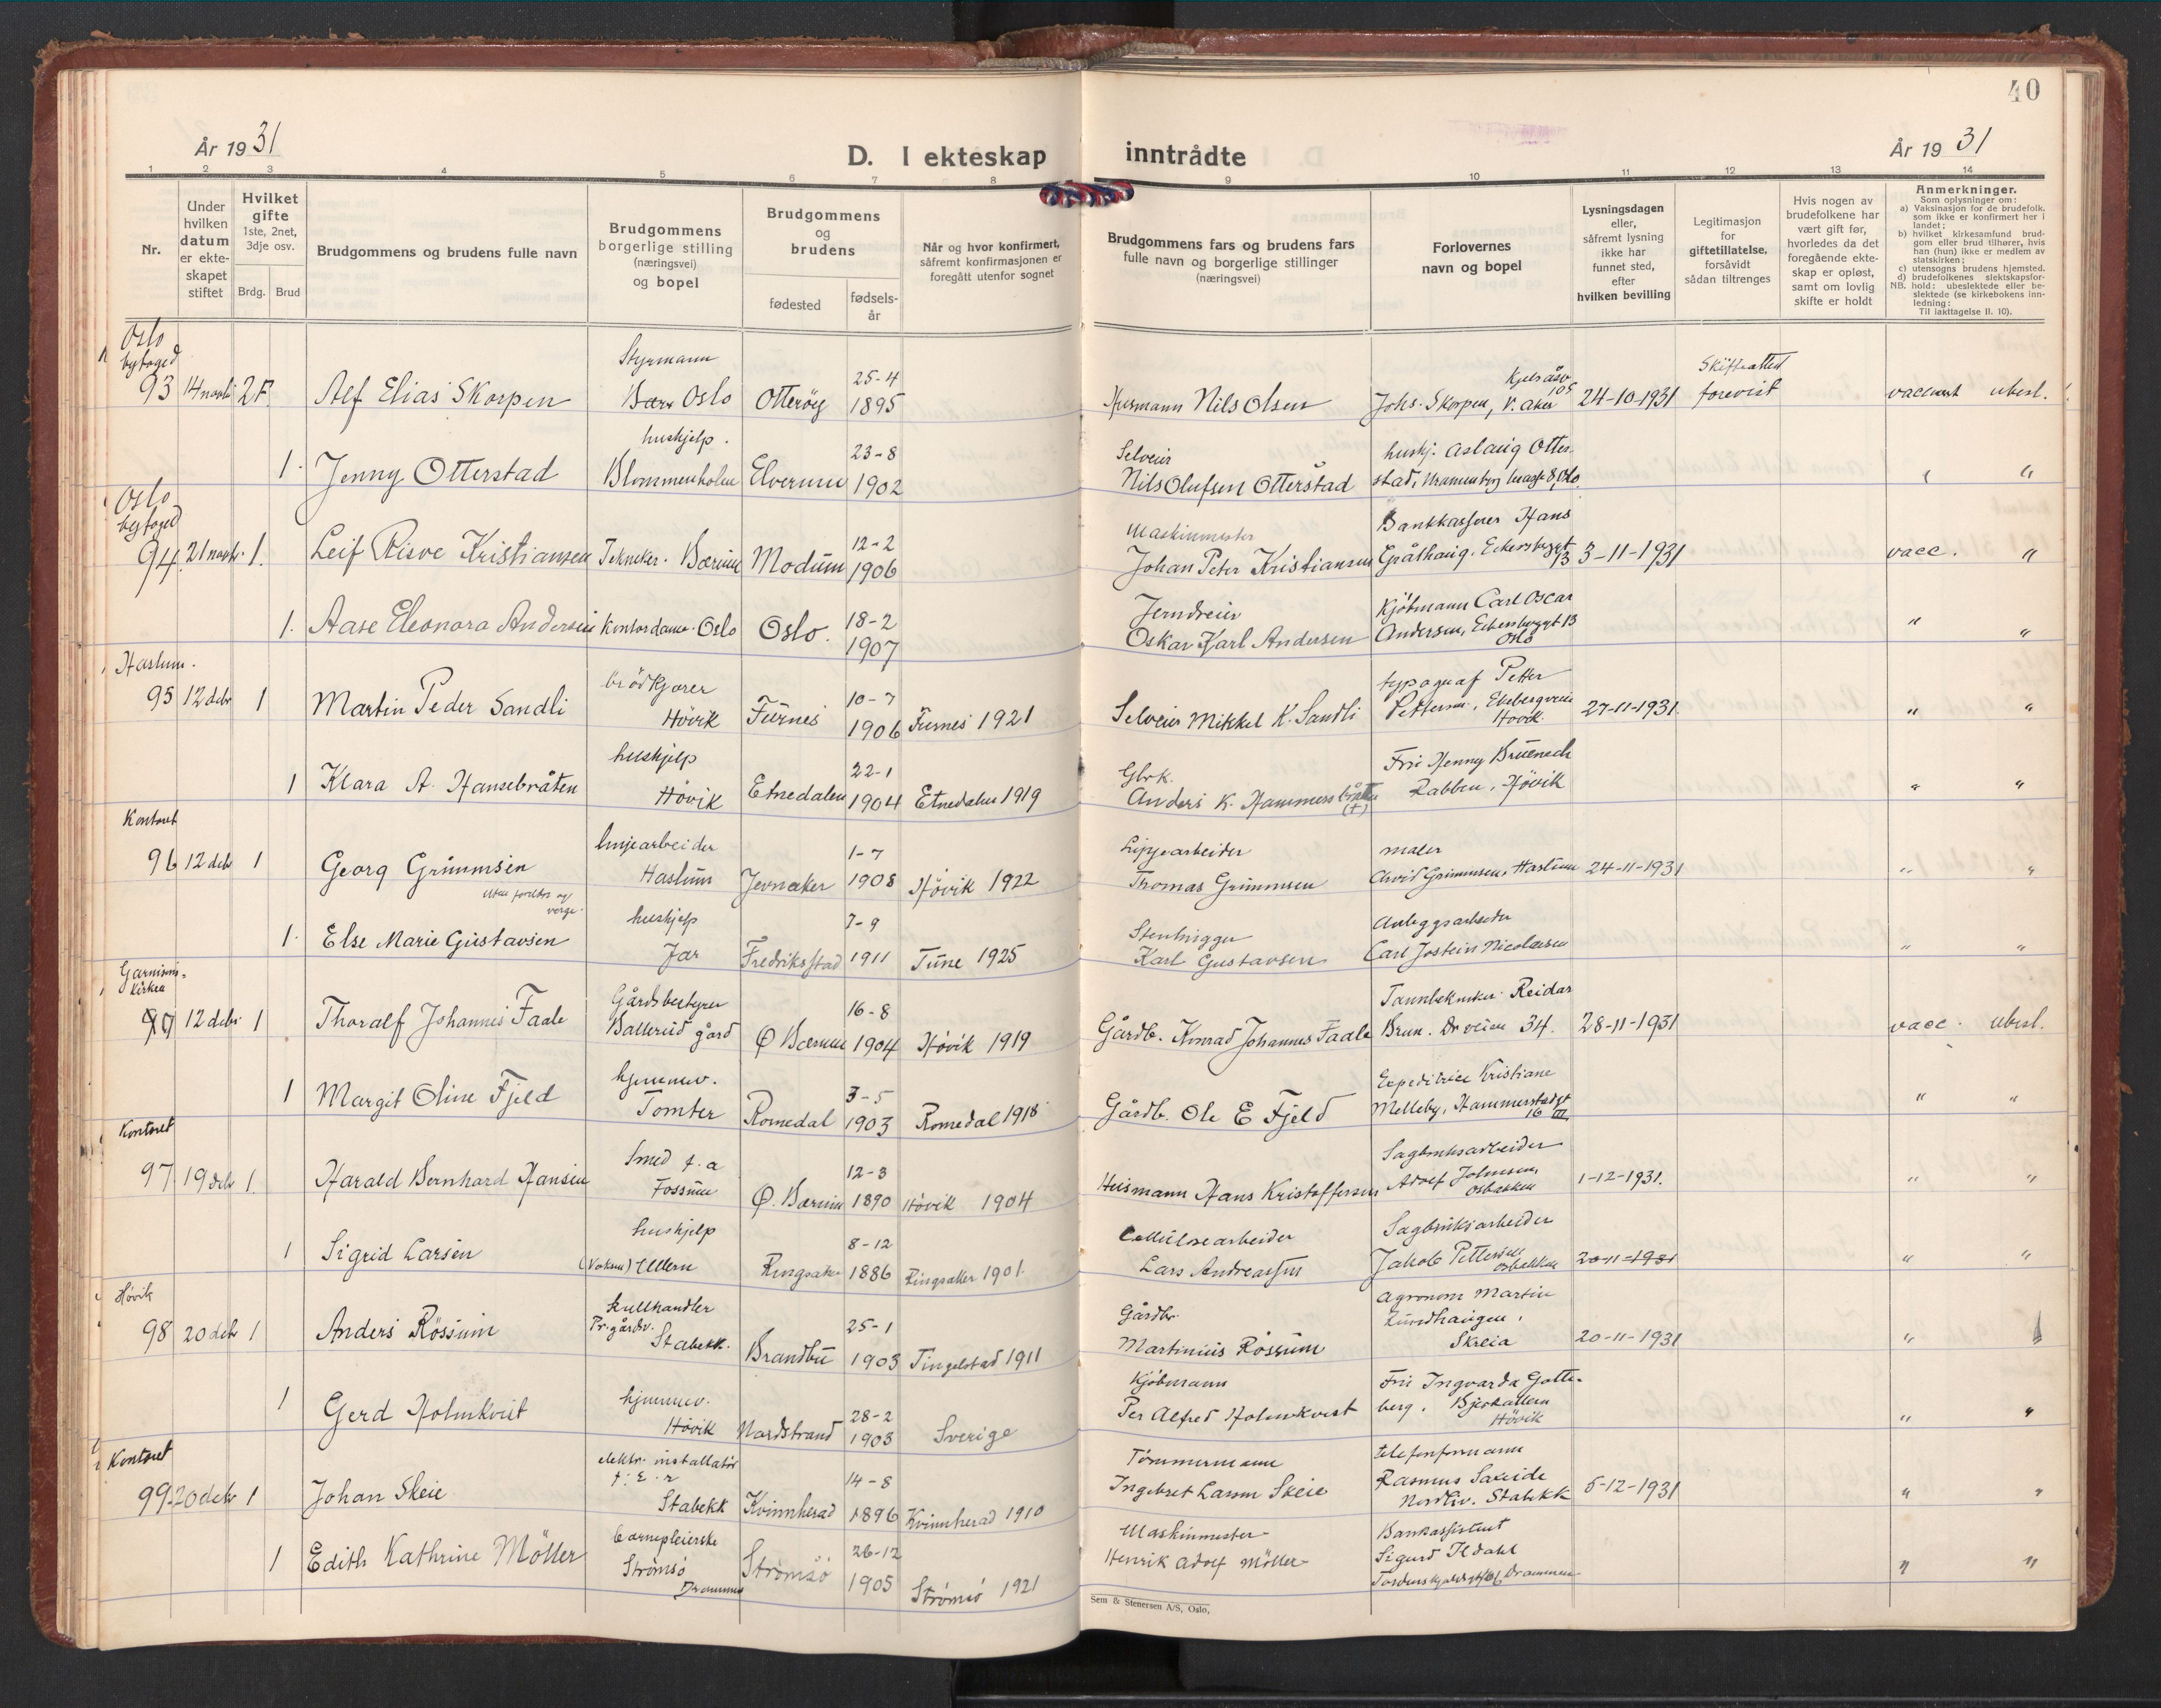 40
År 1931
D. I ekteskap inntrådte
År 1931
1 2 3 4 5 6 7 8 9 10 11 12 13 14
Nr.
Under hvilken datum er ekteskapet stiftet
Hvilket gifte 1ste, 2net, 3dje osv.
Brdg. Brud
Brudgommens og brudens fulle navn
Brudgommens borgerlige stilling (næringsvei) og bopel
Brudgommens og brudens
fødested
fødselsår
Når og hvor konfirmert, såfremt konfirmasjonen er foregått utenfor sognet
Brudgommens fars og brudens fars fulle navn og borgerlige stillinger (næringsvei)
Forlovernes navn og bopel
Lysningsdagen eller, såfremt lysning ikke har funnet sted, efter hvilken bevilling
Legitimasjon for giftetillatelse, forsåvidt sådan tiltrenges
Hvis nogen av brudefolkene har vært gift før, hvorledes da det foregående ekteskap er opløst, samt om lovlig skifte er holdt
Anmerkninger.
Som oplysninger om:
a) Vaksinasjon for de brudefolk, som ikke er konfirmert her i landet;
b) hvilket kirkesamfund brudgom eller brud tilhører, hvis han (hun) ikke er medlem av statskirken;
c) utensogns brudens hjemsted.
d) brudefolkenes slektskapsforhold: ubeslektede eller beslektede (se kirkebokens innledning:
NB. Til iakttagelse II. 10).
Oslo byfoged
93 14 novbr 2 F. Alf Elias Skorpen Styrmann Oslo Otterøy 25-4 1895 Husmann Nils Olsen Johs. Skorpen, Kjelsåsv 105 V. Aker 24-10-1931 Skifteattest forevist vaccinert ubesl.
1. Jenny Otterstad huskjelp. Blommenholm Elverum 23-8 1902 Selveier Nils Olufsen Otterstad huskj. Aslaug Otterstad, Uranienborg 8, Oslo " "
Oslo byfoged
94 21 novbr. 1. Leif Risve Kristiansen Tekniker. Bærum Modum 12-2 1906 Maskinmester Johan Peter Kristiansen Bankkasserer Hans Gråthaug, Eckersbergsgt 13 3-11-1931 vacc. "
1. Aase Eleonora Andersen Kontordame. Oslo Oslo. 18-2 1907 Jerndreier Oskar Karl Andersen Kjöbmann Carl Oscar Andersen, Eckersbergsgt 13 Oslo " "
Haslum.
95 12 debr 1 Martin Peder Sandli brödkjører Hövik Furnes 10-7 1906 Furnes 1921 Selveier Mikkel K. Sandli typograf Petter Pettersen, Ekebergveien Hövik. 27-11-1931 " "
1 Klara A. Hansebråten huskjelp Hövik Etnedalen 22-1 1904 Etnedalen 1919 Gbrk. Anders K. Hammersbråten (†) Fru Henny Bruenech Rabben, Hövik " "
Kontoret
96 12 debr 1 Georg Grimmsen linjearbeider Haslum Jevnaker 1-7 1908 Hövik 1922 Thomas Grimmsen maler Arvid Grimmsen, Haslum 24-11-1931 " "
uten foreldre og verge.
1. Else Marie Gustavsen huskjelp Jar Fredriksstad 7-9 1911 Tune 1925 Stenhugger Karl Gustavsen Anleggsarbeider Carl Jostein Nicolaisen " "
Garnisonskirken
12 debr 1 Thoralf Johannes Faale Gårdsbestyrer Ballerud gård Ø Bærum 16-8 1904 Hövik 1919 Gårdb. Konrad Johannes Faale Tanntekniker Reidar Brun. Drveien 34. 28-11-1931 vacc. ubesl.
1 Margit Oline Fjeld hjemmev. Tomter Romedal 3-5 1903 Romedal 1918 Gårdb. Ole E Fjeld Expeditrice Kristiane Melleby, Hammerstadgt 16 III " "
Kontoret
97 19 debr 1. Harald Bernhard Hansen Smed f. a Fossum Ø. Bærum 12-3 1890 Hövik 1904 Husmann Hans Kristoffersen Sagbruksarbeider Adolf Johnsen, Osbakken 1-12-1931. " "
1 Sigrid Larsen huskjelp (Voksen) Ullern Ringsaker 8-12 1886 Ringsaker 1901 Cellulosearbeider Lars Andreassen Sagbruksarbeider Jakob Pettersen Osbakken 20-11-1931 " "
Hövik
98 20 debr 1 Anders Røssum kullhandler Pr. gårdv. Stabekk. Brandbu 25-1 1903 Tingelstad 1911 Gårdbr. Martinius Røssum Agronom Martin Lundhaugen, Skreia 20-11-1931 "
1 Gerd Holmkvist hjemmev. Hövik Nordstrand 28-2 1903 Sverige Kjöbmann Per Alfred Holmkvist Fru Ingvarda Gotteberg, Bjerkalleen Hövik " "
Kontoret
99. 20 debr 1 Johan Skeie elektr. installatör f. E. r Stabekk Kvinnherad 14-8 1896 Kvinnherad 1910 Tömmermann Ingebret Larsen Skeie telefonformann Rasmus Sakeide Nordliv. Stabekk 5-12-1931 " "
1 Edith Kathrine Möller barnepleierske Strömsö Drammen Strömsö 26-12 1905 Strömsö 1921 Maskinmester Henrik Adolf Möller Bankassistent Sigurd Ildahl Tordenskjoldsgt 66, Drammen " "
Sem & Stenersen A/S, Oslo,